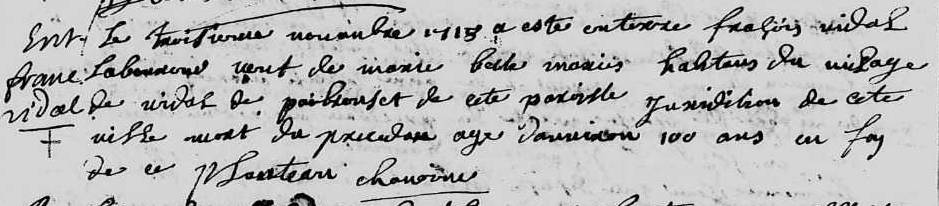 Ent. Le troisieme novembre 1715 a este enterre françois vidal
franc. Laboureur veuf de marie maries habitans du village
vidal de vidal de de cete paroisse Juridition de cete
ville mort du precedan age d'anviron 100 ans en foy
de ce chanoine